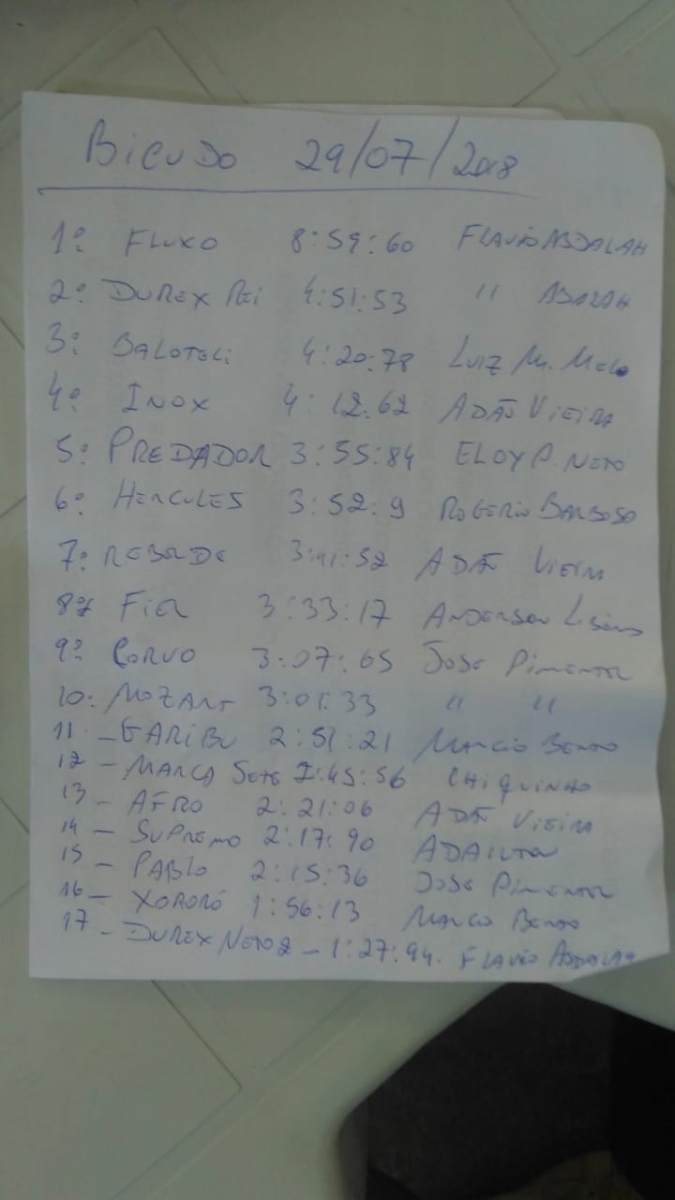 BICUDO 29/07/2018
1º FLUXO 8:59:60 FLAVIO ABDALAH
2º DUREX REI 4:51:53 " ABALAH
3º BALOTELI 4:20:78 LUIZ M. MELO
4º INOX 4:12.62 ADÃO VIEIRA
5º PREDADOR 3:55:84 ELOY P. NETO
6º HERCULES 3:52:9 ROGERIO BARBOSO
7º REBORDE 3:41:52 ADÃO VIEIRA
8º FIEL 3:33:17 ANDERSON
9º CORVO 3:07:65 JOSE PIMENTEL
10: MOZART 3:01:33 " "
11 - GARIBU 2:51:21 MARCIO BENTO
12 - MARCA SETE 2:45:56 CHIQUINHO
13 - AFRO 2:21:06 ADÃO VIEIRA
14 - SUPREMO 2:17:90 ADAILTON
15 - PABLO 2:15:36 JOSE PIMENTEL
16 - XORORÓ 1:56:13 MARCIO BENTO
17 - DUREX NETO 2 - 1:27:94. FLAVIO ABDALAH